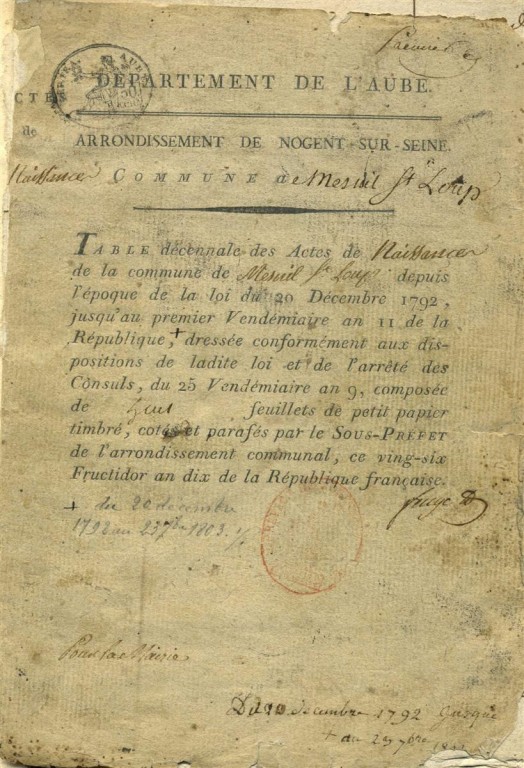 Première
DÉPARTEMENT DE L'AUBE.
ACTES
de
ARRONDISSEMENT DE NOGENT-SUR-SEINE.
Naissance
COMMUNE de Mesnil St Loup
TABLE décennale des Actes de Naissance
de la commune de Mesnil St Loup depuis
l'époque de la loi du 20 Décembre 1792,
jusqu'au premier Vendémiaire an 11 de la
République, + dressée conformément aux dis-
positions de ladite loi et de l'arrêté des
Consuls, du 25 Vendémiaire an 9, composée
de feuillets de petit papier
timbré, cotés et parafés par le SOUS-PRÉFET
de l'arrondissement communal, ce ving-six
Fructidor an dix de la République française.
+ du 20 decembre
1792 au 23 7bre 1803.
Pour la Mairie
Du 20 decembre 1792 jusque
+ au 23 7bre